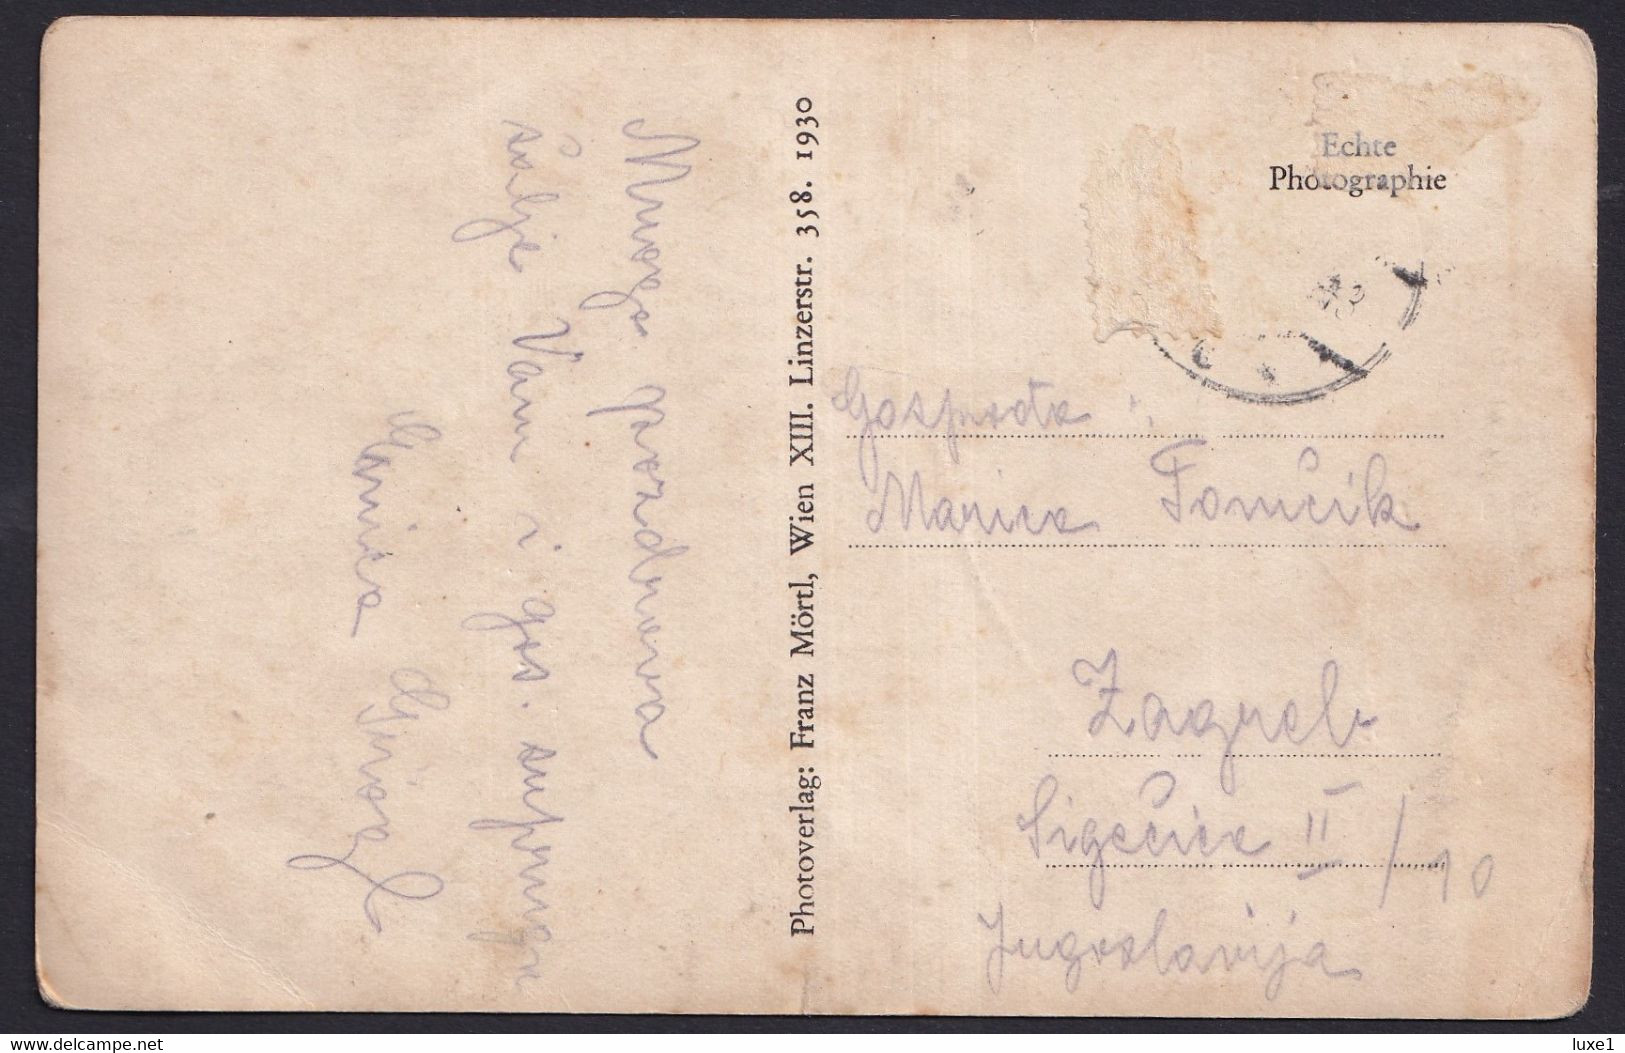 Mnogo pozdrava
šalje Vam i gos. suprugu
Photoverlag: Franz Mörtl, Wien XIII. Linzerstr. 358. 1930
Echte
Photographie
Gospođa :
Marica Tomčik
Zagreb
Sigečica II / 10
Jugoslavija
delcampe.net
luxe1